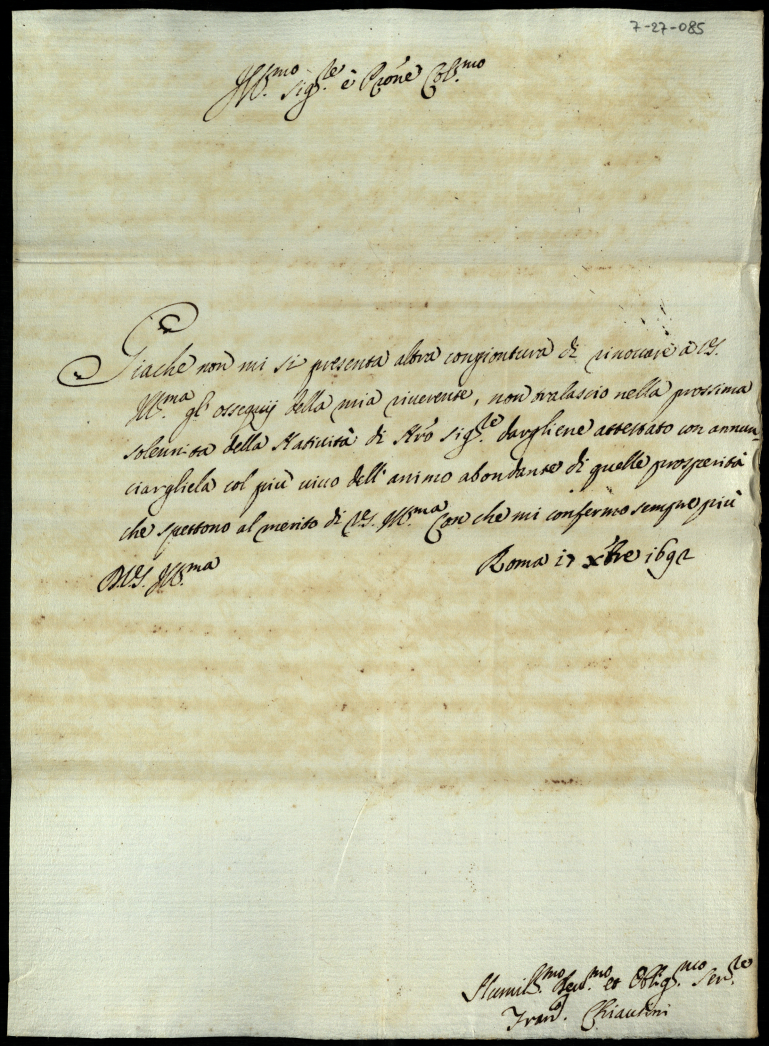 7-27-085
Ill.mo Sig.re è Pròne Col.mo
Giache non mi si presenta altra congiontura di rinovare a VS.
Ill.ma gl'ossequij della mia riverente, non tralascio nella prossima
solennità della Natività di Nrõ Sig.re dargliene attestato con annun
ciargliela col più vivo dell'animo abondante di quelle prosperità
che spettono al merito di VS. Ill.ma Con che mi confermo sempre più
D.VS. Ill.ma
Roma xbre 1692
Humil.mo Dev.mo et Obblig.mo Ser.re
Chiantini